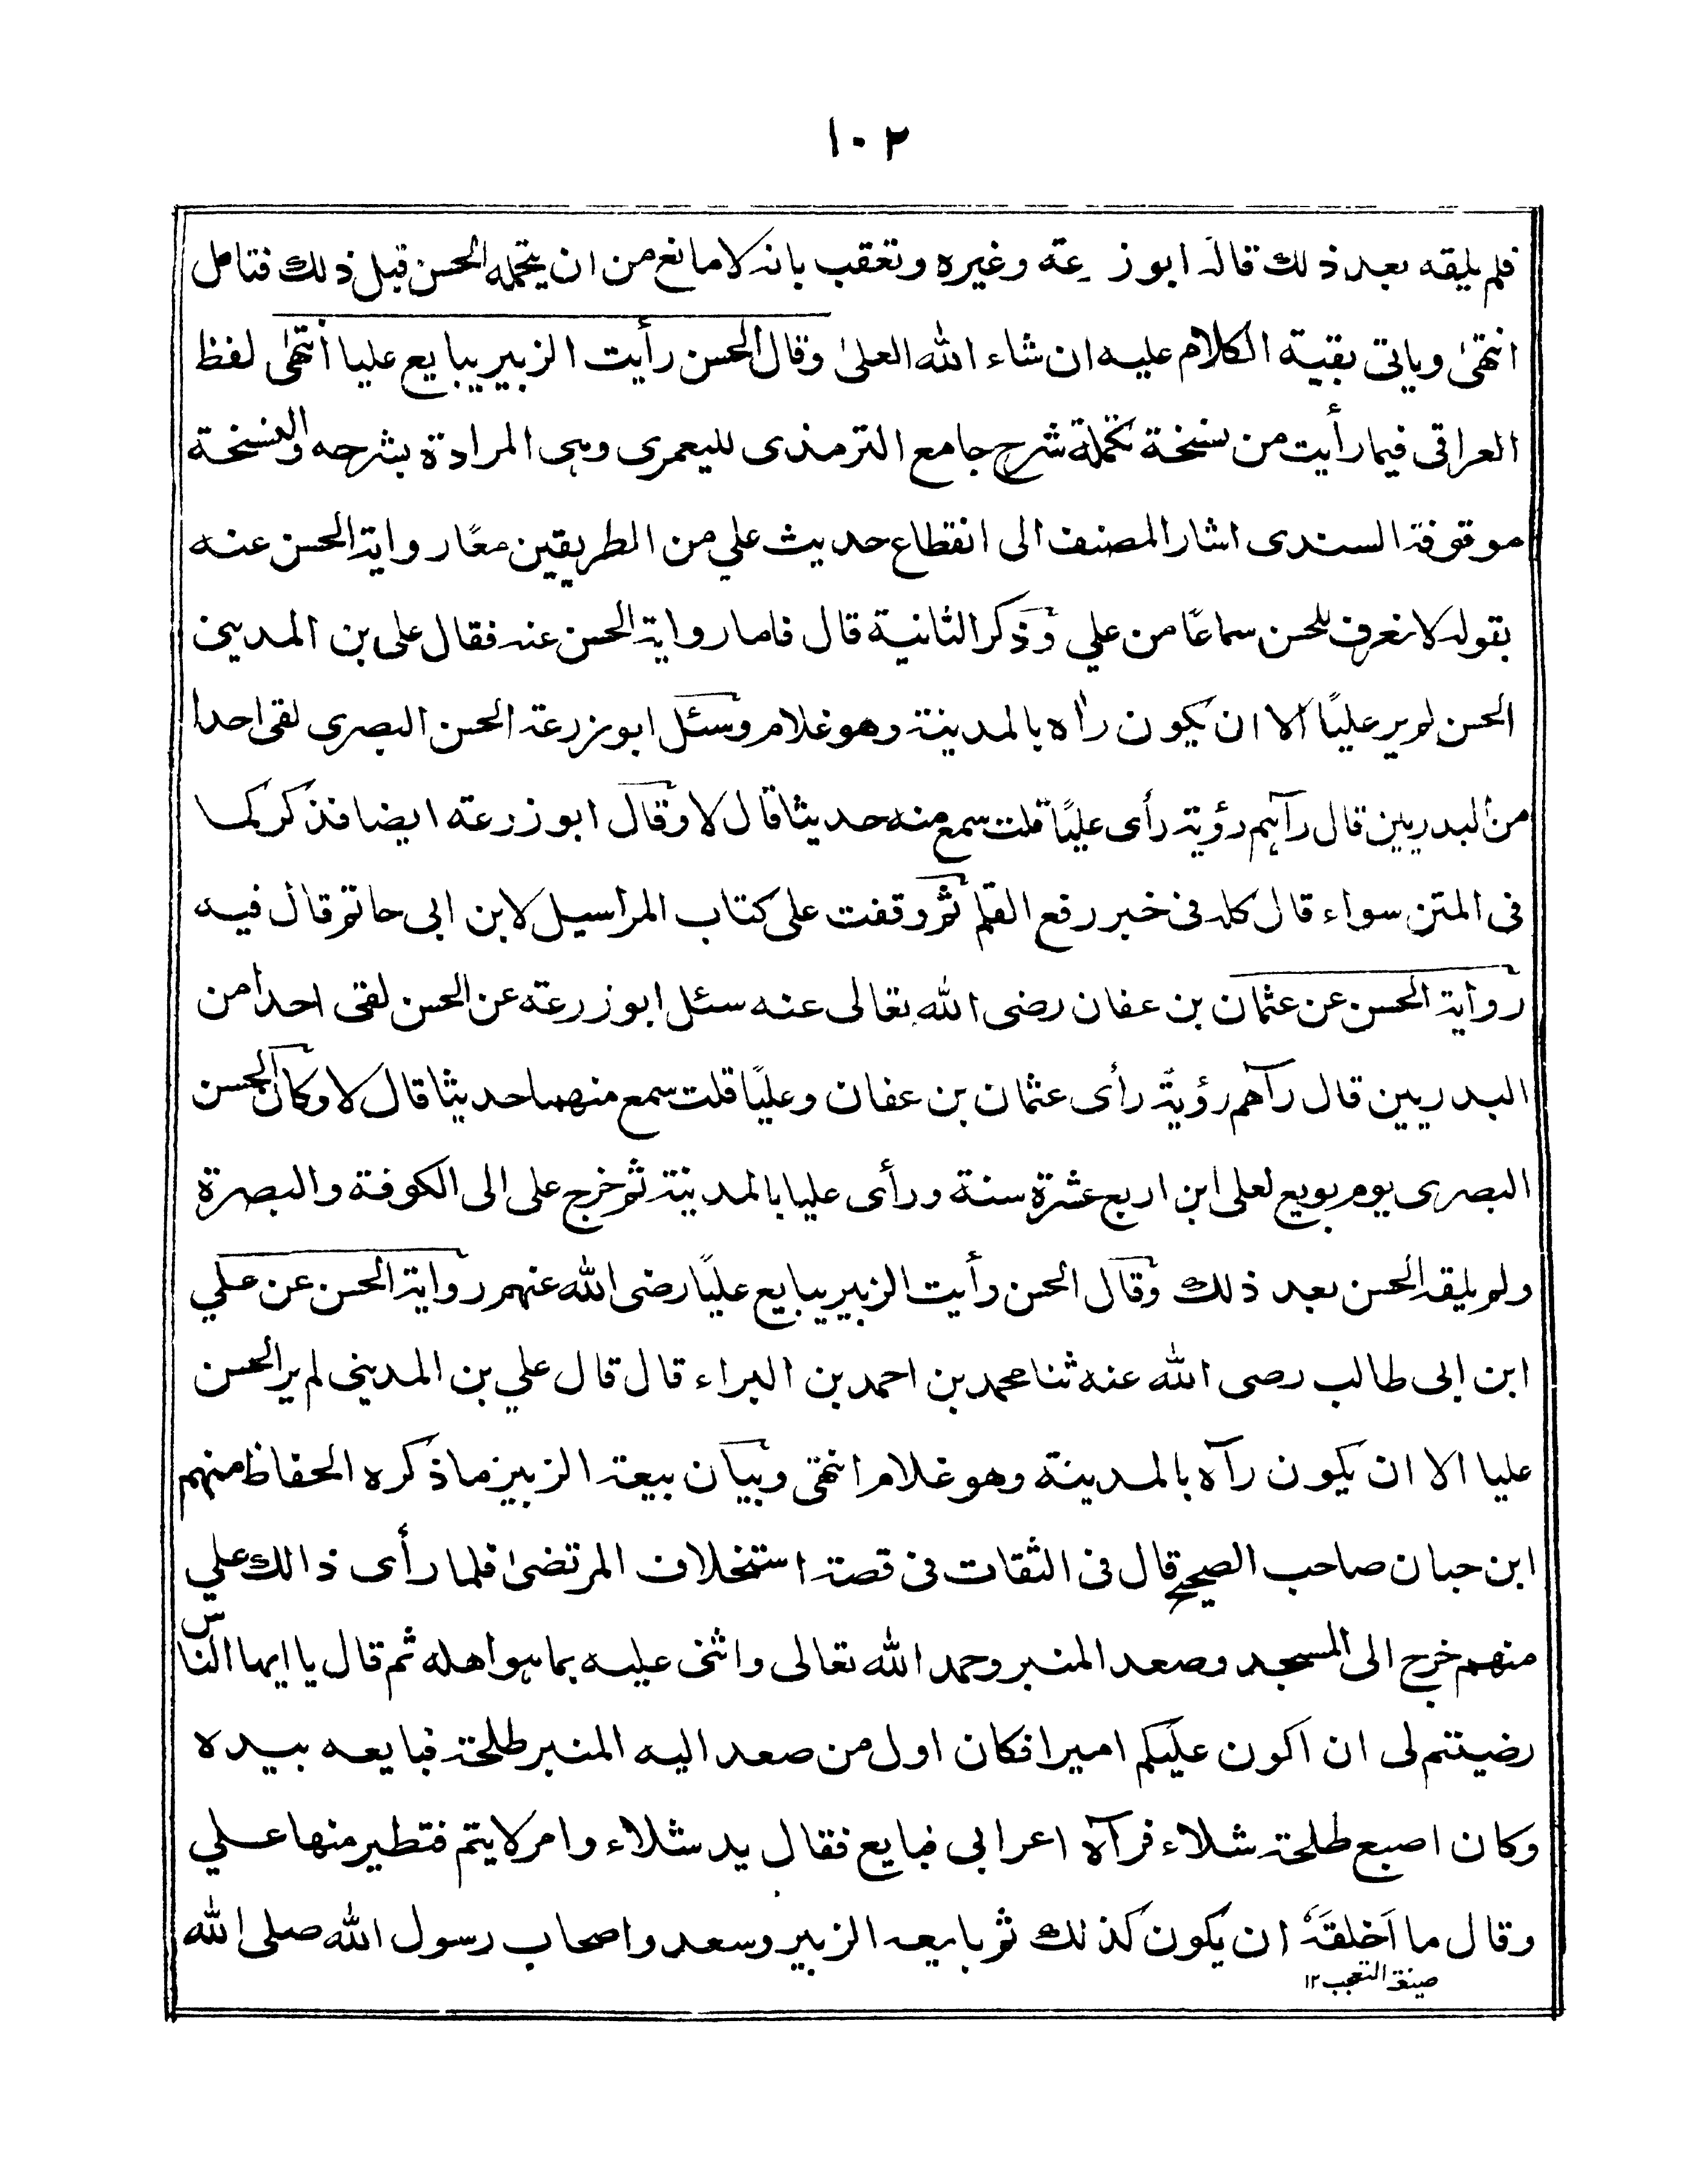 ١٠٢
فلم يلقه بعد ذلك قاله ابو زرعة وغيره وتعقب بانه لا مانع من ان يتحمله الحسن قبل ذلك فتامل
انتهىٰ وياتى بقية الكلام عليه ان شاء الله العلىٰ وقال الحسن رأيت الزبير يبايع عليا انتهىٰ لفظ
العراقى فيما رأيت من نسخة تكملة شرح جامع الترمذى لليعمرى وهى المرادة بشرحه والنسخة
موقوفة السندى اشار المصنف الى انقطاع حديث علي من الطريقين معًا رواية الحسن عنه
بقوله لا نعرف للحسن سماعًا من علي وذكر الثانية قال فاما رواية الحسن عنه فقال على بن المدينى
الحسن لم ير عليًا الا ان يكون رأه بالمدينة وهو غلام وسئل ابو زرعة الحسن البصرى لقى احدا
من البدريين قال رآهم رؤية رأى عليًا قلت سمع منه حديثا قال لا وقال ابو زرعة ايضا فذكر كما
فى المتن سواء قال كله فى خبر رفع القلم ثم وقفت على كتاب المراسيل لابن ابى حاتم قال فيه
رواية الحسن عن عثمان بن عفان رضى الله تعالى عنه سئل ابو زرعة عن الحسن لقى احدا من
البدريين قال رآهم رؤيةً رأى عثمان بن عفان وعليًا قلت سمع منهما حديثا قال لا وكان الحسن
البصرى يوم بويع لعلى ابن اربع عشرة سنة ورأى عليا بالمدينة ثم خرج على الى الكوفة والبصرة
ولم يلقه الحسن بعد ذلك وقال الحسن رأيت الزبير يبايع عليًا رضى الله عنهم رواية الحسن عن علي
ابن ابى طالب رضى الله عنه ثنا محمد بن احمد بن البراء قال قال علي بن المدينى لم ير الحسن
عليا الا ان يكون رآه بالمدينة وهو غلام انتهى وبيان بيعة الزبير ما ذكره الحفاظ منهم
ابن حبان صاحب الصحيح قال فى الثقات فى قصة استخلاف المرتضىٰ فلما رأى ذالك علي
منهم خرج الى المسجد وصعد المنبر وحمد الله تعالى واثنى عليه بما هو اهله ثم قال يا ايها الناس
رضيتم لى ان اكون عليكم اميرا فكان اول من صعد اليه المنبر طلحة فبايعه بيده
وكان اصبع طلحة شلاء فرآه اعرابى فبايع فقال يد شلاء وامر لا يتم فتطير منها علي
وقال ما اَخلقَهٗ ان يكون كذلك ثم بايعه الزبير وسعد واصحاب رسول الله صلى الله
صيغة التعجب ١٢